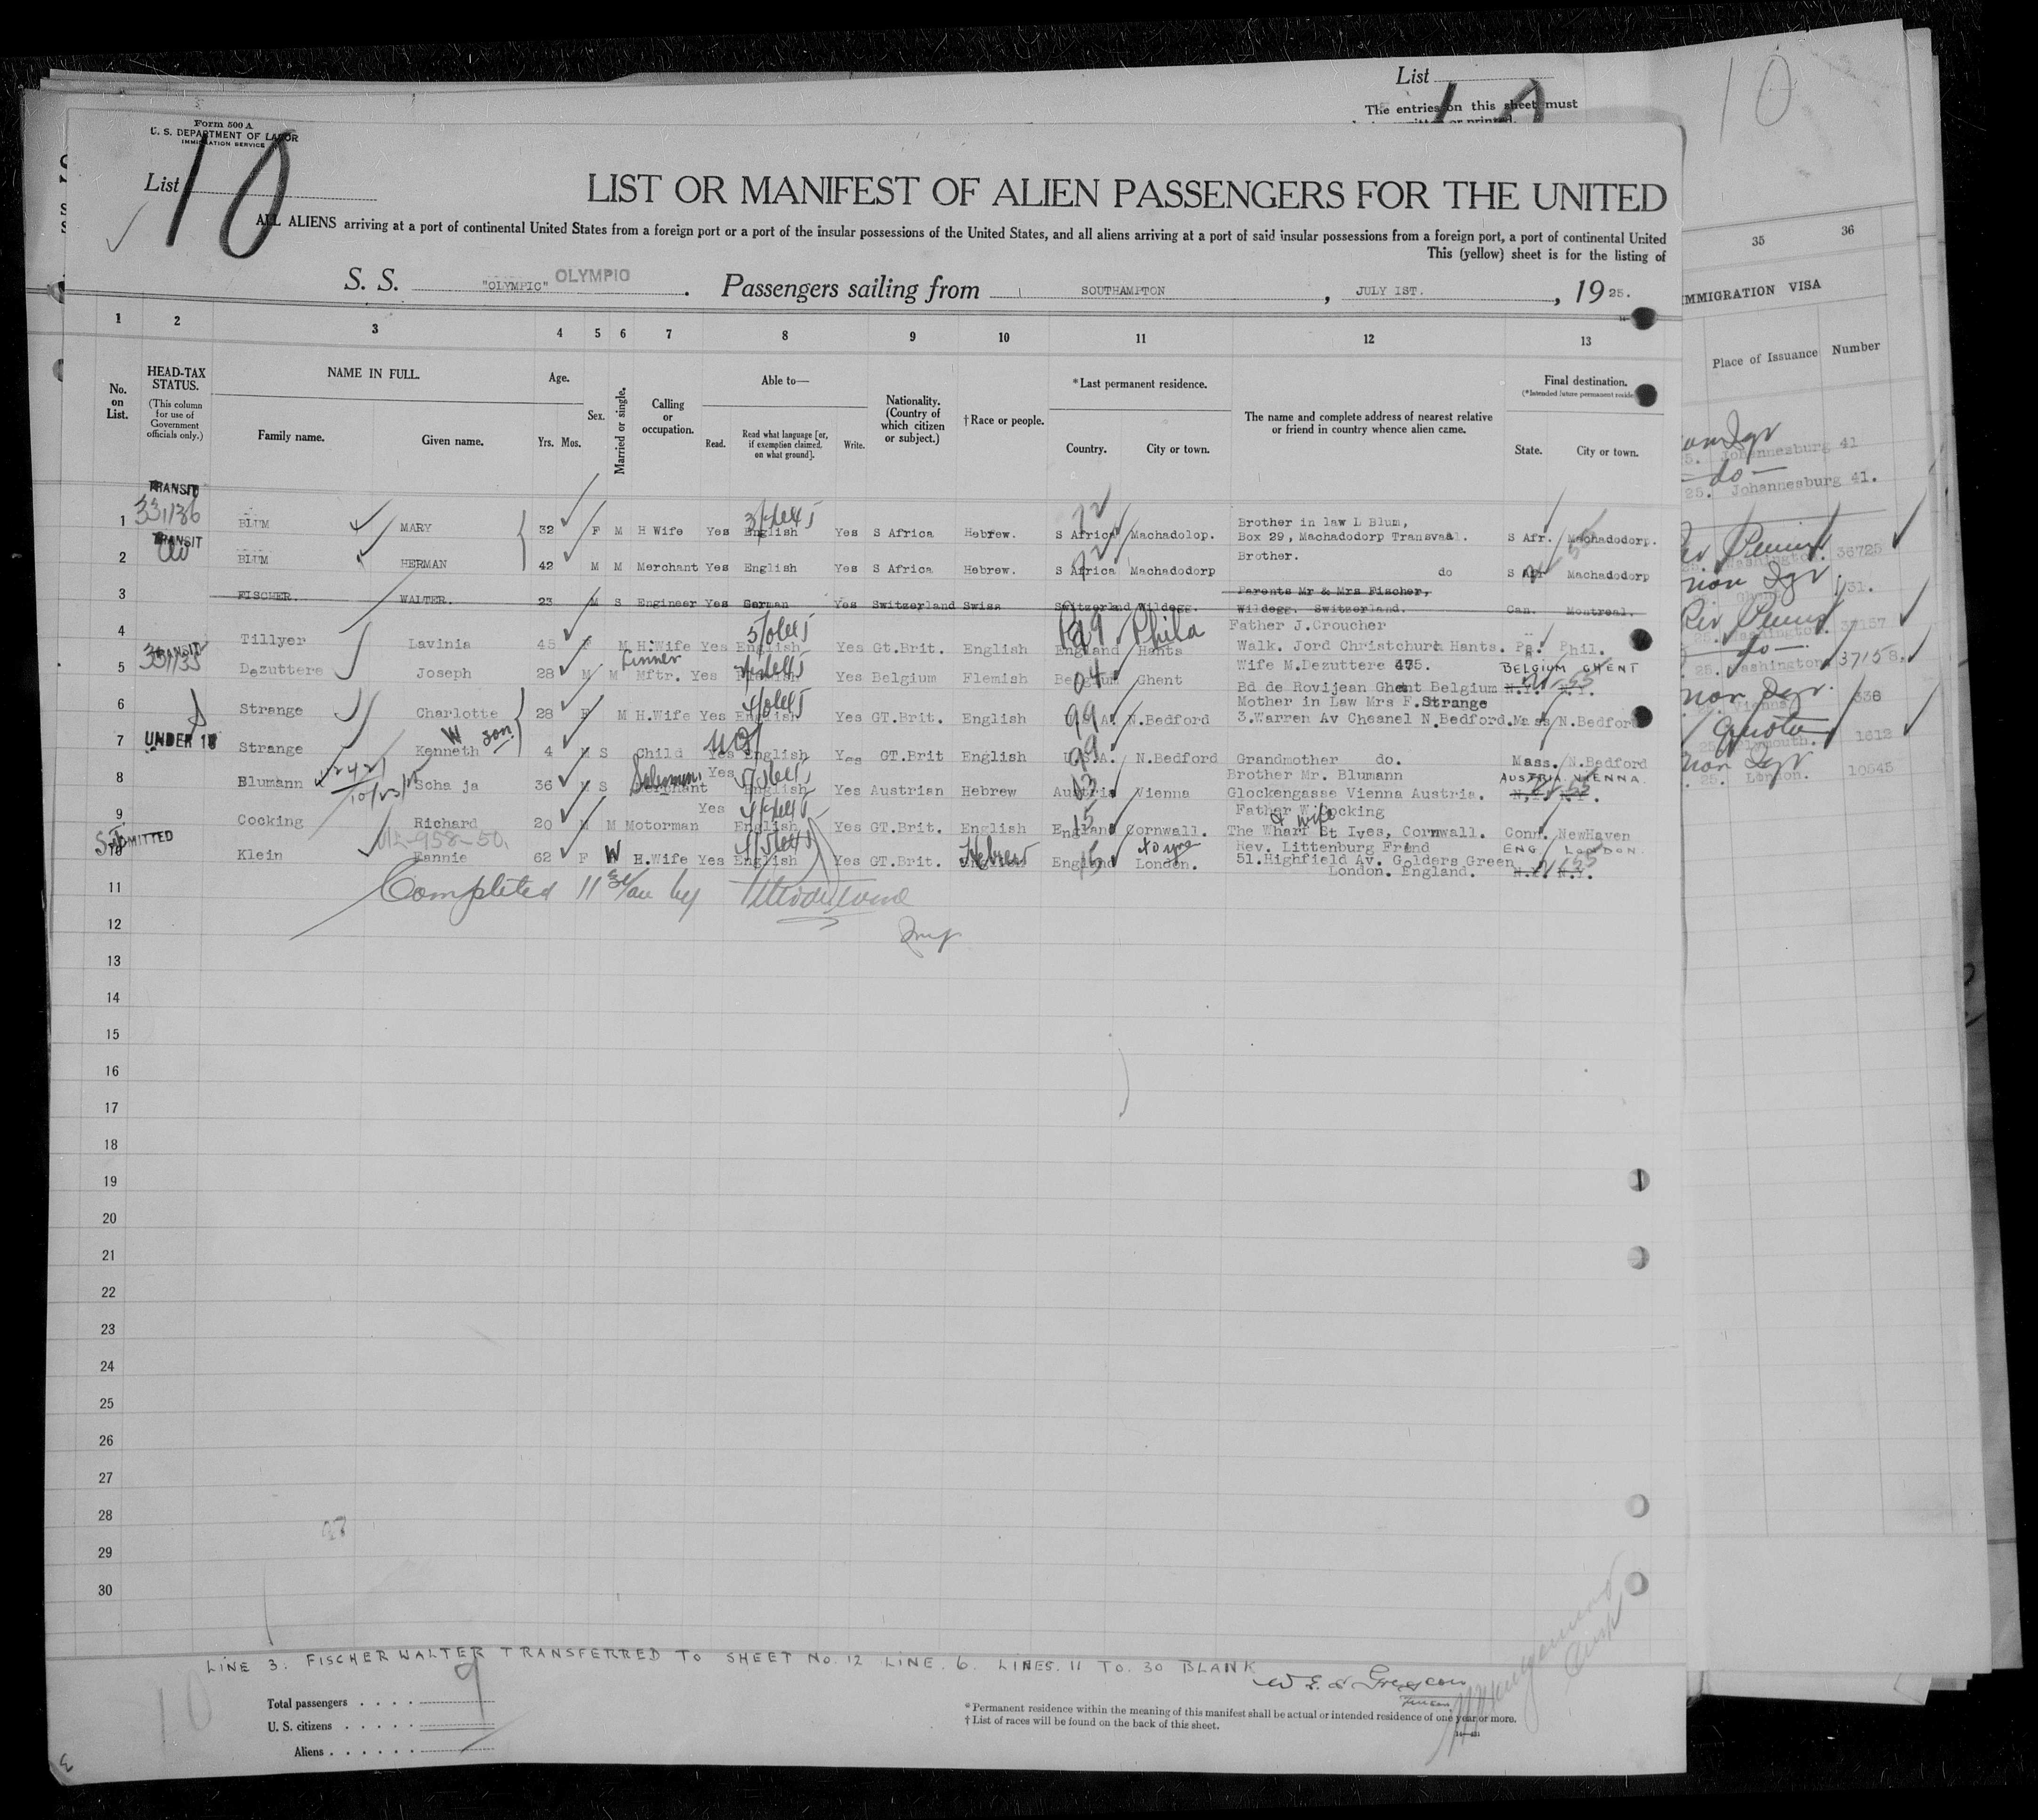 List
The entries on this sheet must
10
Form 500 A
U. S. DEPARTMENT OF LABOR
IMMIGRATION SERVICE
List 10
LIST OR MANIFEST OF ALIEN PASSENGERS FOR THE UNITED
ALL ALIENS arriving at a port of continental United States from a foreign port or a port of the insular possessions of the United States, and all aliens arriving at a port of said insular possessions from a foreign port, a port of continental United
This (yellow) sheet is for the listing of
S. S. "OLYMPIC" OLYMPIC. Passengers sailing from SOUTHAMPTON, JULY 1ST., 1925.
1 2 3 4 5 6 7 8 9 10 11 12 13
35 36
IMMIGRATION VISA
Place of Issuance Number
No. on List.
HEAD-TAX STATUS.
(This column for use of Government officials only.)
NAME IN FULL.
Family name. Given name.
Age.
Yrs. Mos.
Sex.
Married or single.
Calling or occupation.
Able to—
Read. Read what language [or, if exemption claimed, on what ground]. Write.
Nationality. (Country of which citizen or subject.)
† Race or people.
*Last permanent residence.
Country. City or town.
The name and complete address of nearest relative or friend in country whence alien came.
Final destination.
State. City or town.
TRANSIT
1 BLUM MARY 32 F M H Wife Yes English Yes S Africa Hebrew. S Africa Machadolop. Brother in law L Blum, Box 29, Machadodorp Transvaal. S Afr. Machadodorp. Johannesburg 41
TRANSIT
2 BLUM HERMAN 42 M M Merchant Yes English Yes S Africa Hebrew. S Africa Machadodorp Brother. do S Afr Machadodorp do 25. Johannesburg 41.
3 FISCHER. WALTER. 23 M S Engineer Yes German Yes Switzerland Swiss Switzerland Wildegg. Parents Mr & Mrs Fischer, Wildegg. Switzerland. Can. Montreal.
4 Tillyer Lavinia 45 F M H.Wife Yes English Yes Gt.Brit. English England Hants Phila Father J.Croucher Walk. Jord Christchurch Hants. Pa. Phil. Washington. 36725
TRANSIT
5 Dezuttere Joseph 28 M M Mftr. Yes Flemish Yes Belgium Flemish Belgium Ghent Wife M.Dezuttere 475. Bd de Rovijean Ghent Belgium N.Y. N.Y. BELGIUM GHENT
6 Strange Charlotte 28 F M H.Wife Yes English Yes GT.Brit. English U.S.A. N.Bedford Mother in Law Mrs F.Strange 3.Warren Av Chesnel N.Bedford. Mass N.Bedford Washington.
UNDER 16
7 Strange Kenneth W son 4 M S Child Yes English Yes GT.Brit English U.S.A. N.Bedford Grandmother do. Mass. N.Bedford do 25. Washington 37158.
8 Blumann Scha ja 36 M S Merchant Yes English Yes Austrian Hebrew Austria Vienna Brother Mr. Blumann Glockengasse Vienna Austria. N.Y. N.Y. AUSTRIA VIENNA. Vienna 336
9 Cocking Richard 20 M M Motorman Yes English Yes GT.Brit. English England Cornwall. Father W.Cocking & wife The Wharf St Ives, Cornwall. Conn. NewHaven Quota 1612
ADMITTED
10 Klein Fannie 62 F W H.Wife Yes English Yes GT.Brit. Hebrew England London. Rev. Littenburg Frend 51.Highfield Av. Golders Green London. England. N.Y. N.Y. ENG. LONDON. 25. London. 10645
Completed 11
11
12
13
14
15
16
17
18
19
20
21
22
23
24
25
26
27
28
29
30
LINE 3. FISCHER WALTER TRANSFERRED TO SHEET NO. 12 LINE. 6. LINES. 11 TO. 30 BLANK
Total passengers . . . . 9
U. S. citizens . . . . .
Aliens . . . . . .
* Permanent residence within the meaning of this manifest shall be actual or intended residence of one year or more.
† List of races will be found on the back of this sheet.